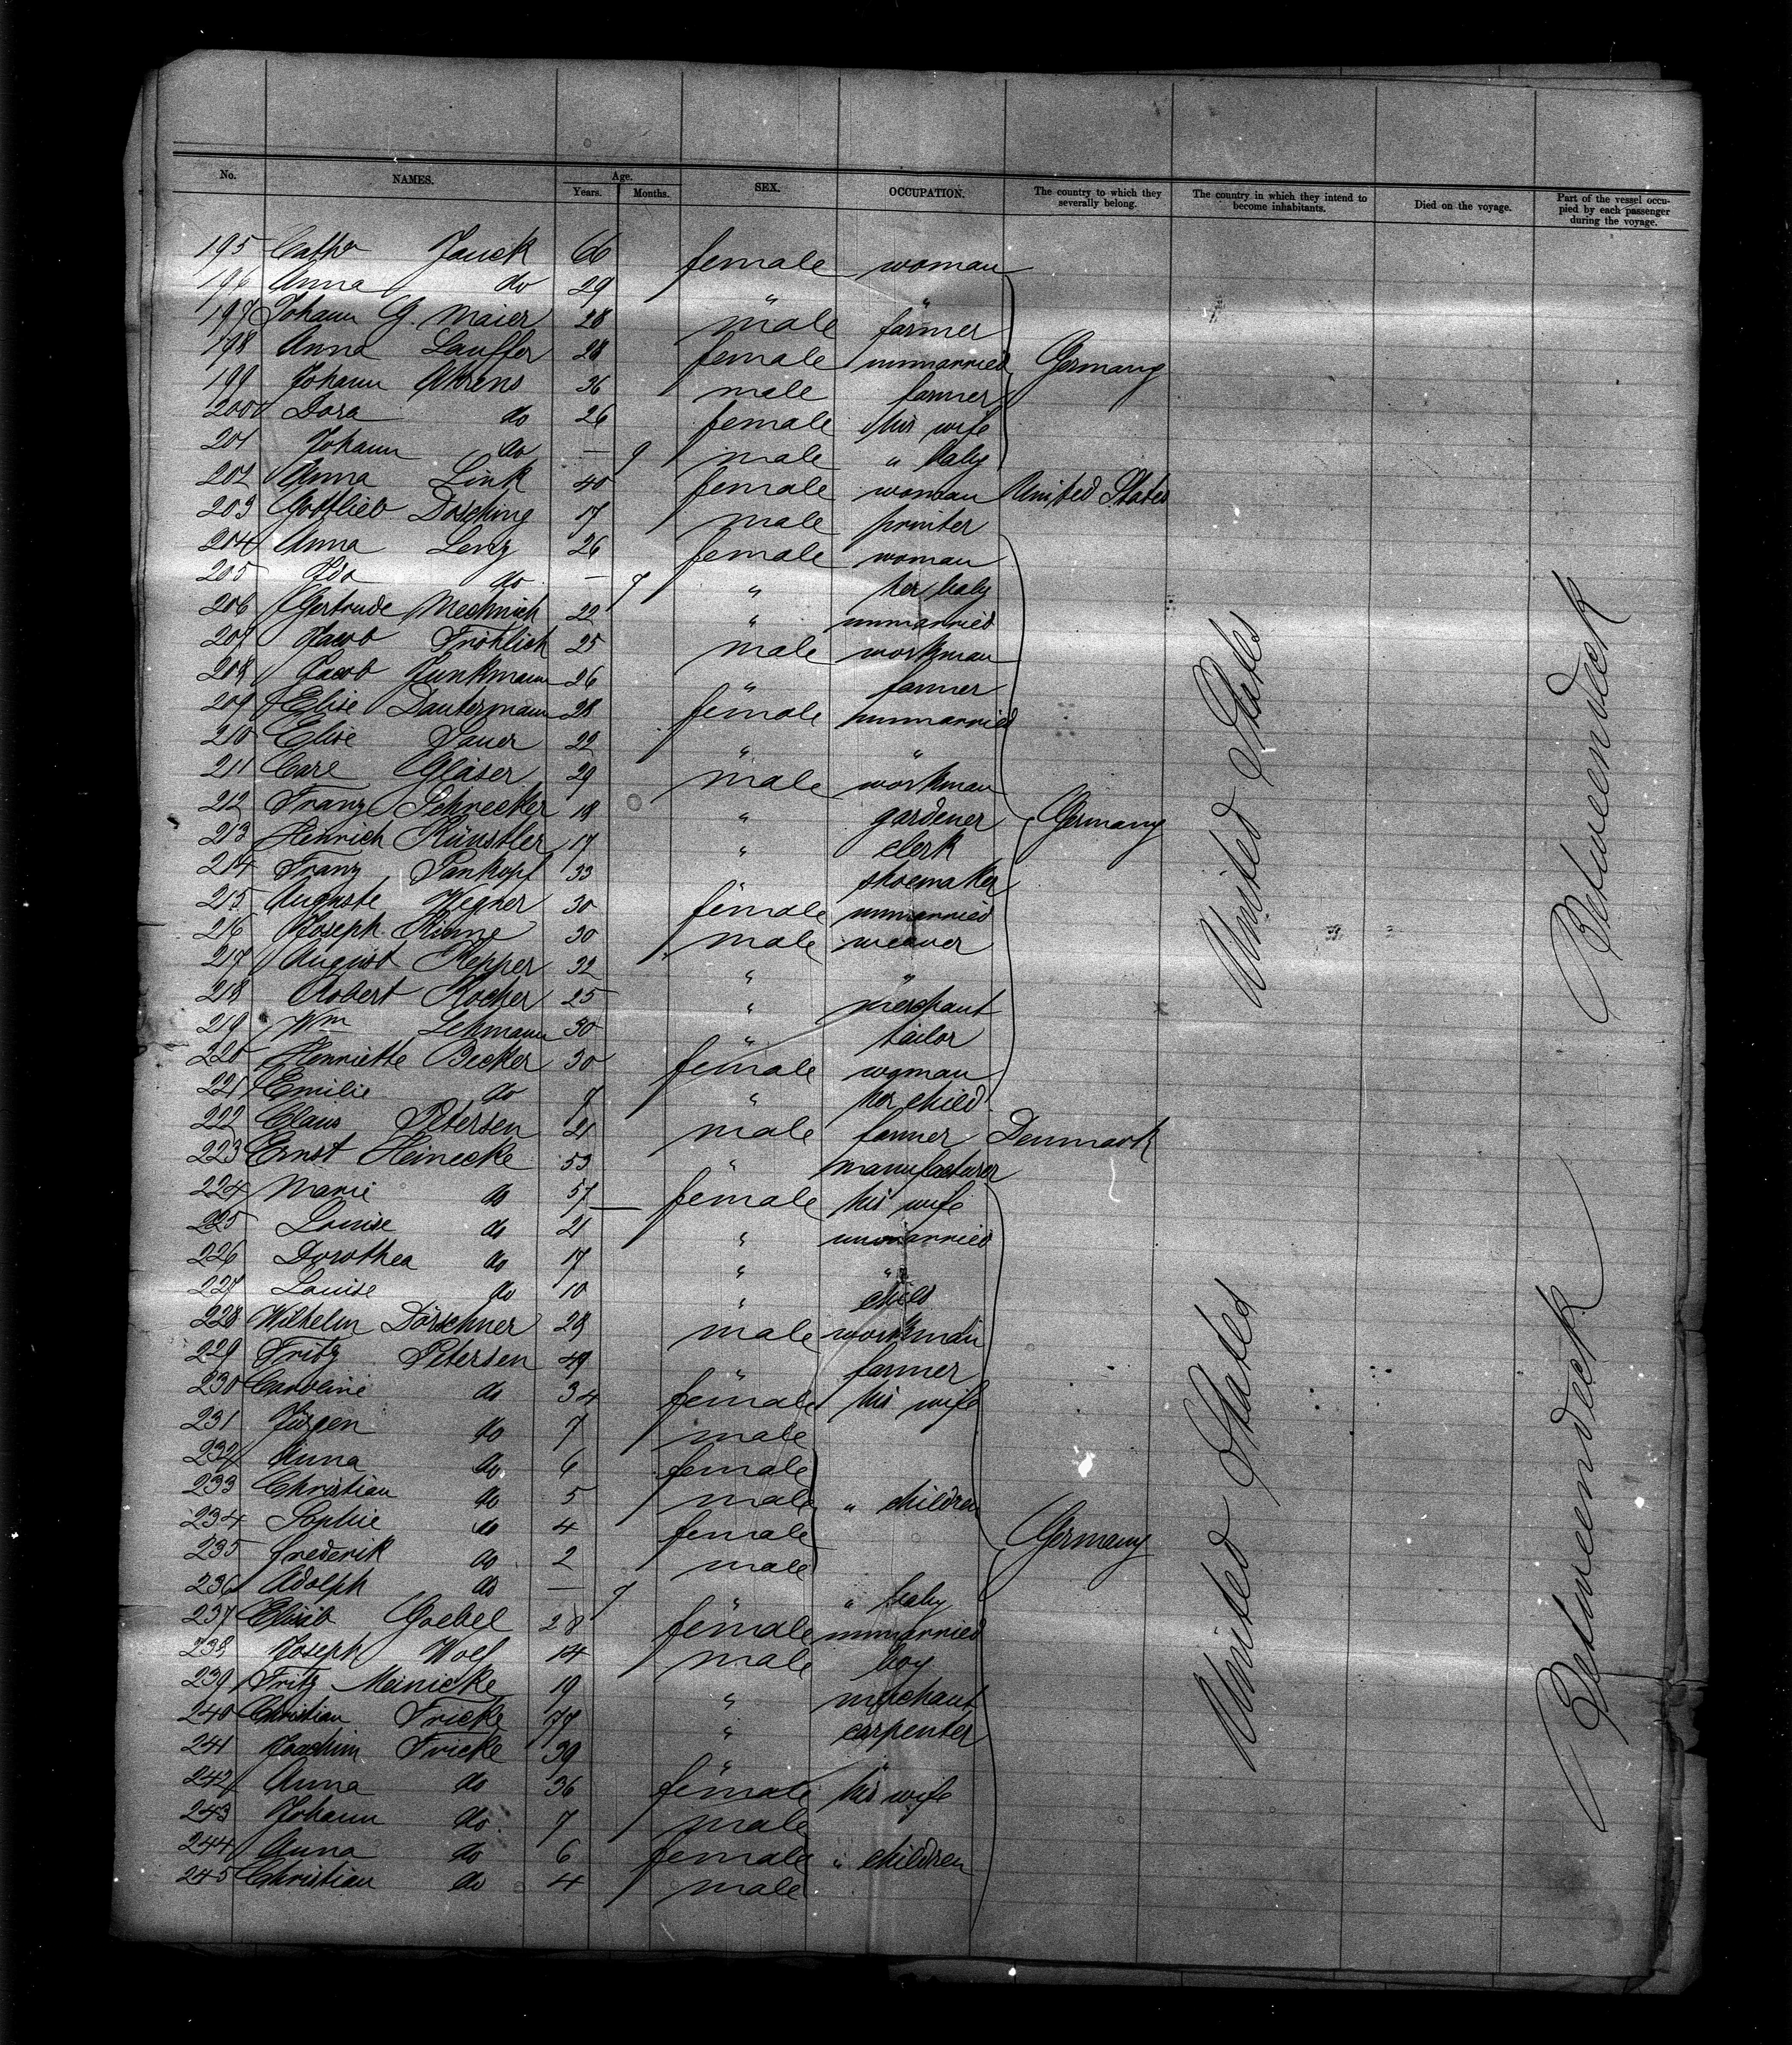 No. NAMES. Age. Years. Months. SEX. OCCUPATION. The country to which they severally belong. The country in which they intend to become inhabitants. Died on the voyage. Part of the vessel occupied by each passenger during the voyage.
195 Cathe Jauck 66 female woman
196 Anna do 29 " "
197 Johann G. Maier 28 male farmer
198 Anna Lauffer 28 female unmarried Germany
199 Johann Ahrens 36 male farmer
200 Dora do 26 female his wife
201 Johann do — 9 male " baby
202 Anna Link 40 female woman United States
203 Gottlieb Dösching 17 male printer
204 Anna Lenz 26 female woman
205 Ida do — 7 " her baby
206 Gertrude Mechnich 22 " unmarried
207 Jacob Fröhlich 25 male workman
208 Jacob Junkmann 26 " farmer
209 Elise Dautermann 28 female unmarried
210 Elise Sauer 22 " "
211 Carl Gläser 29 male workman
212 Franz Schnecker 18 " gardener Germany
213 Heinrich Künstler 17 " clerk
214 Franz Pankopf 33 shoemaker
215 Auguste Wegner 30 female unmarried
216 Joseph Rinne 30 male weaver
217 August Kepper 32 " "
218 Robert Kocher 25 " merchant
219 Wm Lehmann 30 " tailor
220 Henriette Becker 30 female woman
221 Emilie do 7 " her child
222 Claus Petersen 21 male farmer Denmark
223 Ernst Heinecke 53 " manufacturer
224 Marie do 57 female his wife
225 Louise do 21 " unmarried
226 Dorothea do 17 " "
227 Louise do 10 " child
228 Wilhelm Dörschner 28 male workman
229 Fritz Petersen 49 " farmer
230 Caroline do 34 female his wife
231 Jürgen do 7 male
232 Anna do 6 female
233 Christian do 5 male " children
234 Sophie do 4 female
235 Frederik do 2 male Germany
236 Adolph do — 7 " " baby
237 Elisab Goebel 28 female unmarried
238 Joseph Wolf 14 male boy
239 Fritz Meinicke 19 " merchant
240 Christian Fricke 77 " carpenter
241 Joachim Fricke 39 "
242 Anna do 36 female his wife
243 Johann do 7 male
244 Anna do 6 female " children
245 Christian do 4 male
United States
Betweendeck
United States
Betweendeck